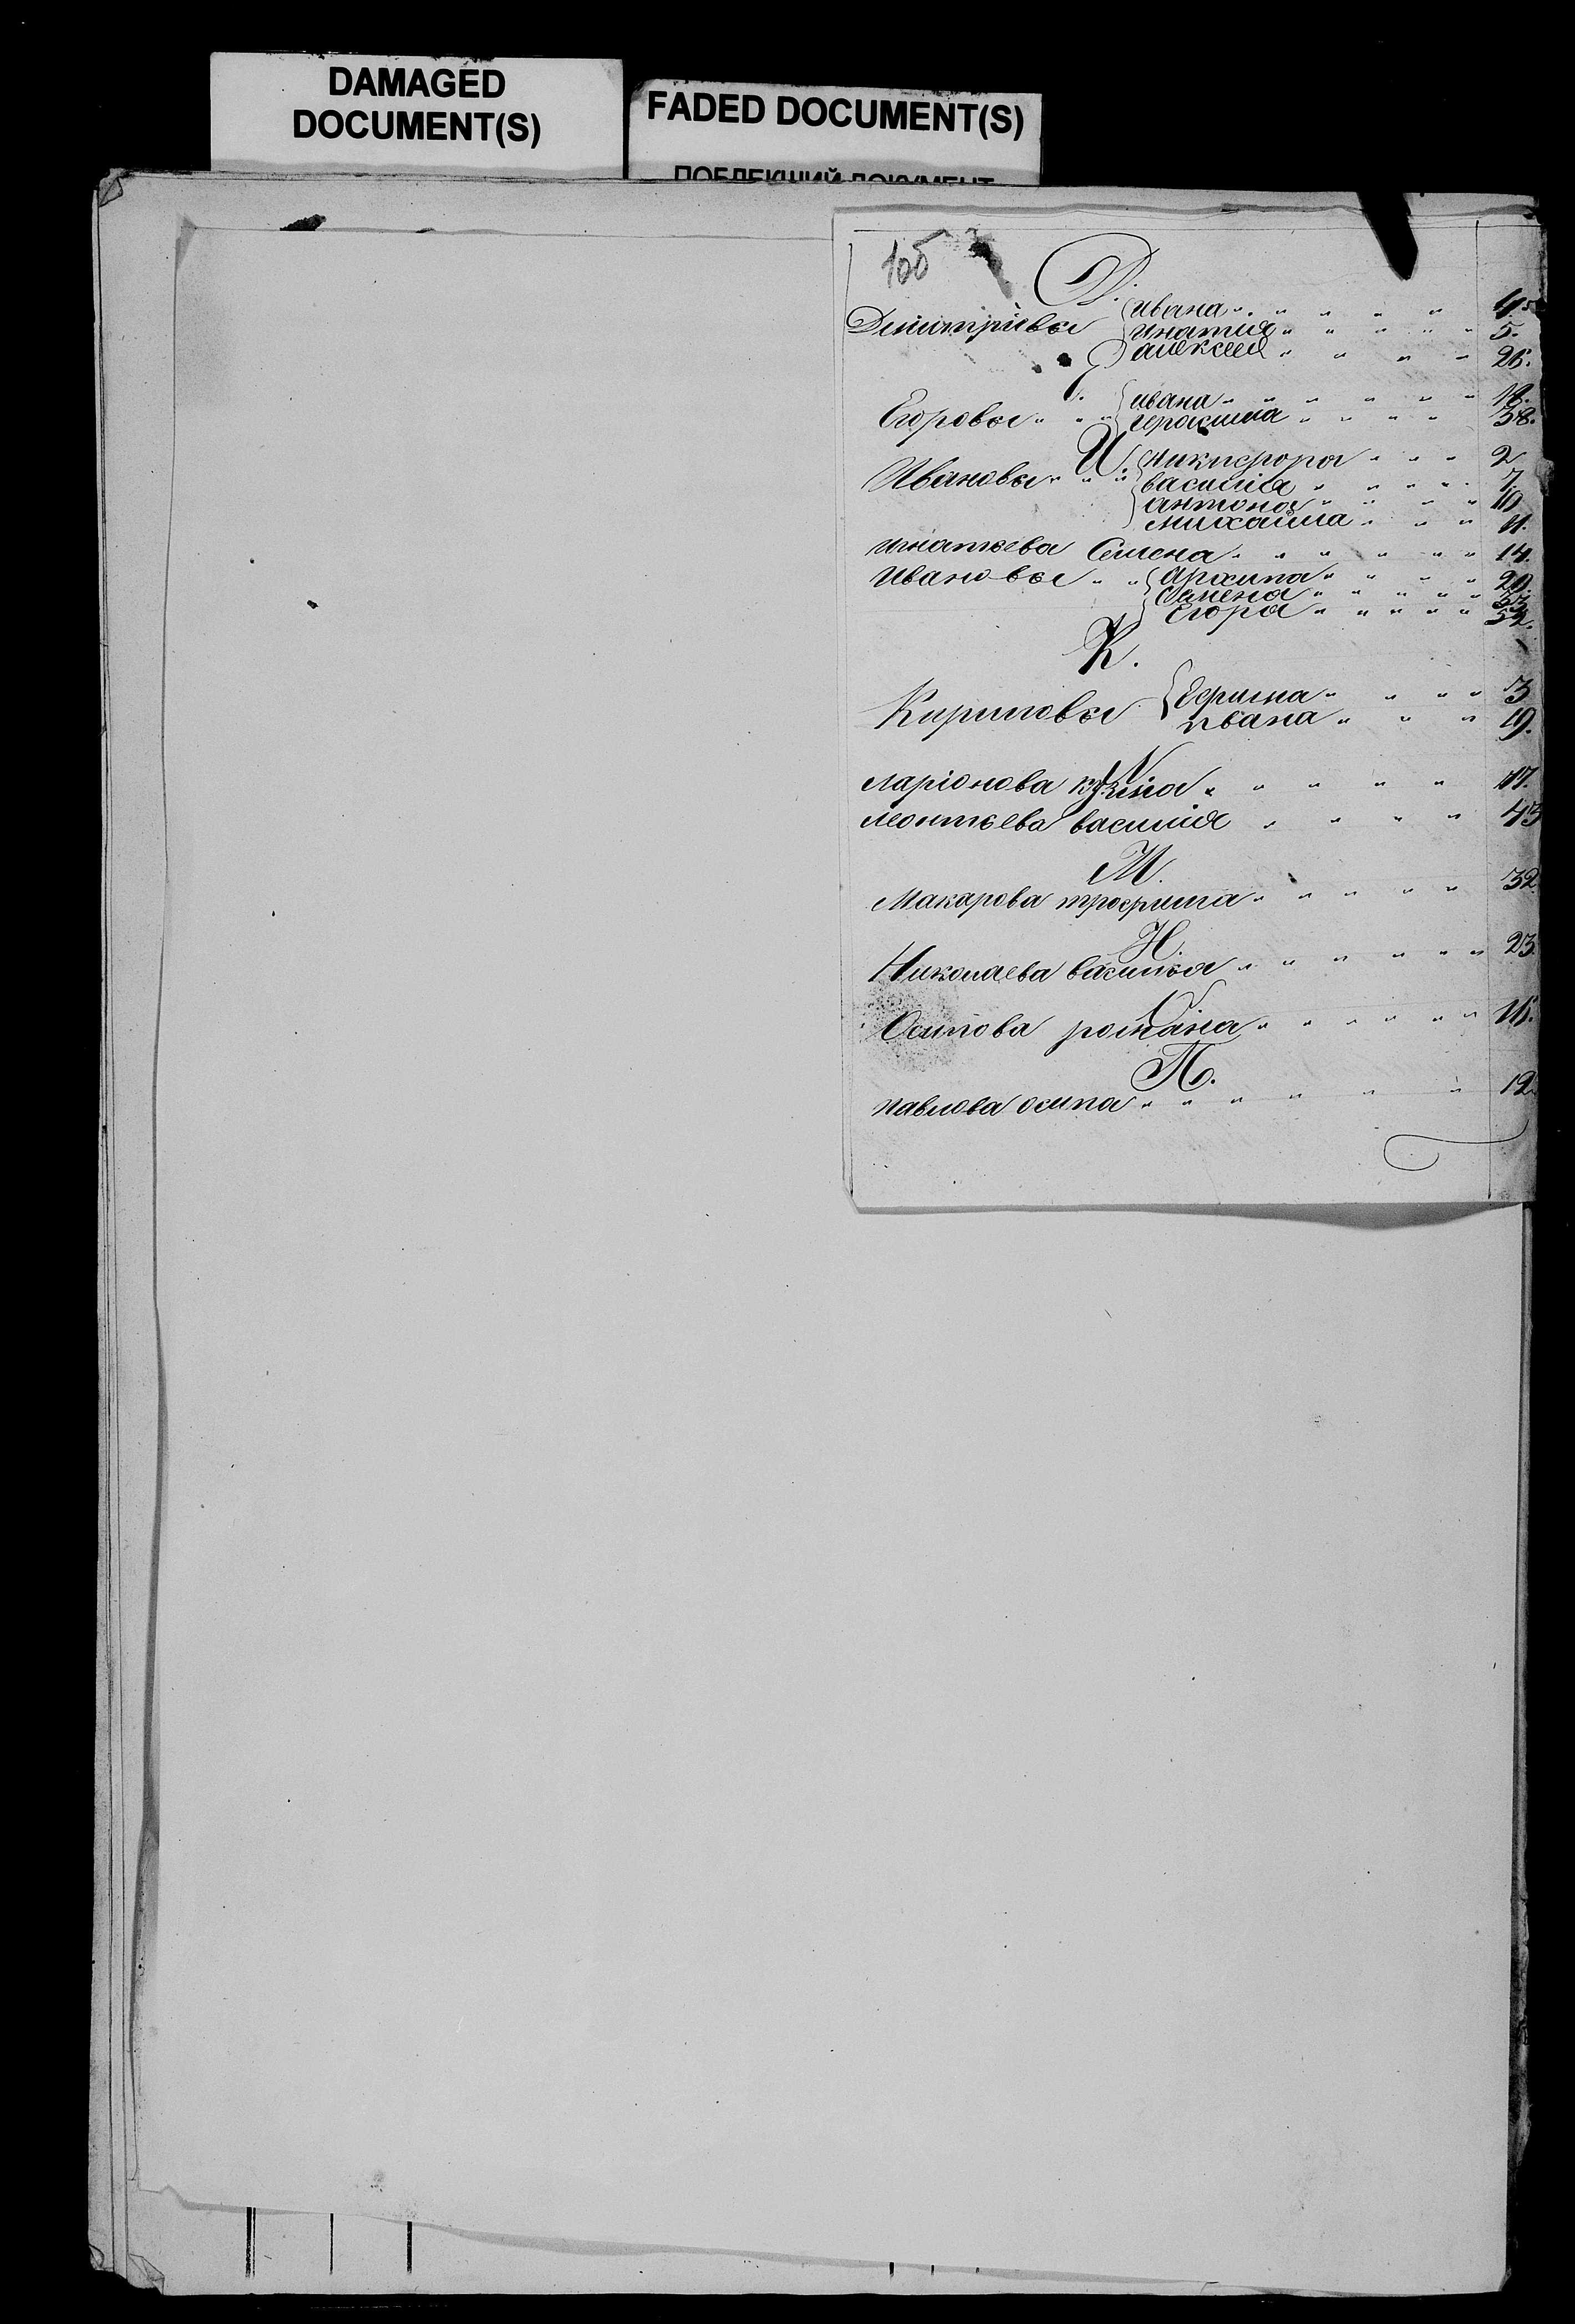 DAMAGED
DOCUMENT(S)
FADED DOCUMENT(S)
ПОБЛЕКШИЙ ДОКУМЕНТ
105
Д.
Димитріевы { ивана 4.
игнатия 5.
алексея 26.
Е.
Егоровы { ивана 18.
герасима 38.
И.
Ивановы { никифора 2
василия 7.
антона 10
михаила 11.
игнатьева Семена 14.
Ивановы { архипа 20.
Семена 33.
Егора 52.
К.
Кириловы { Ефима 3
ивана 19.
Л
ларіонова кузмы 17.
леонтьева василия 43
М.
Макарова трофима 32.
Н.
Николаева василья 23.
О
Осипова романа 16.
П.
павлова осипа 12.